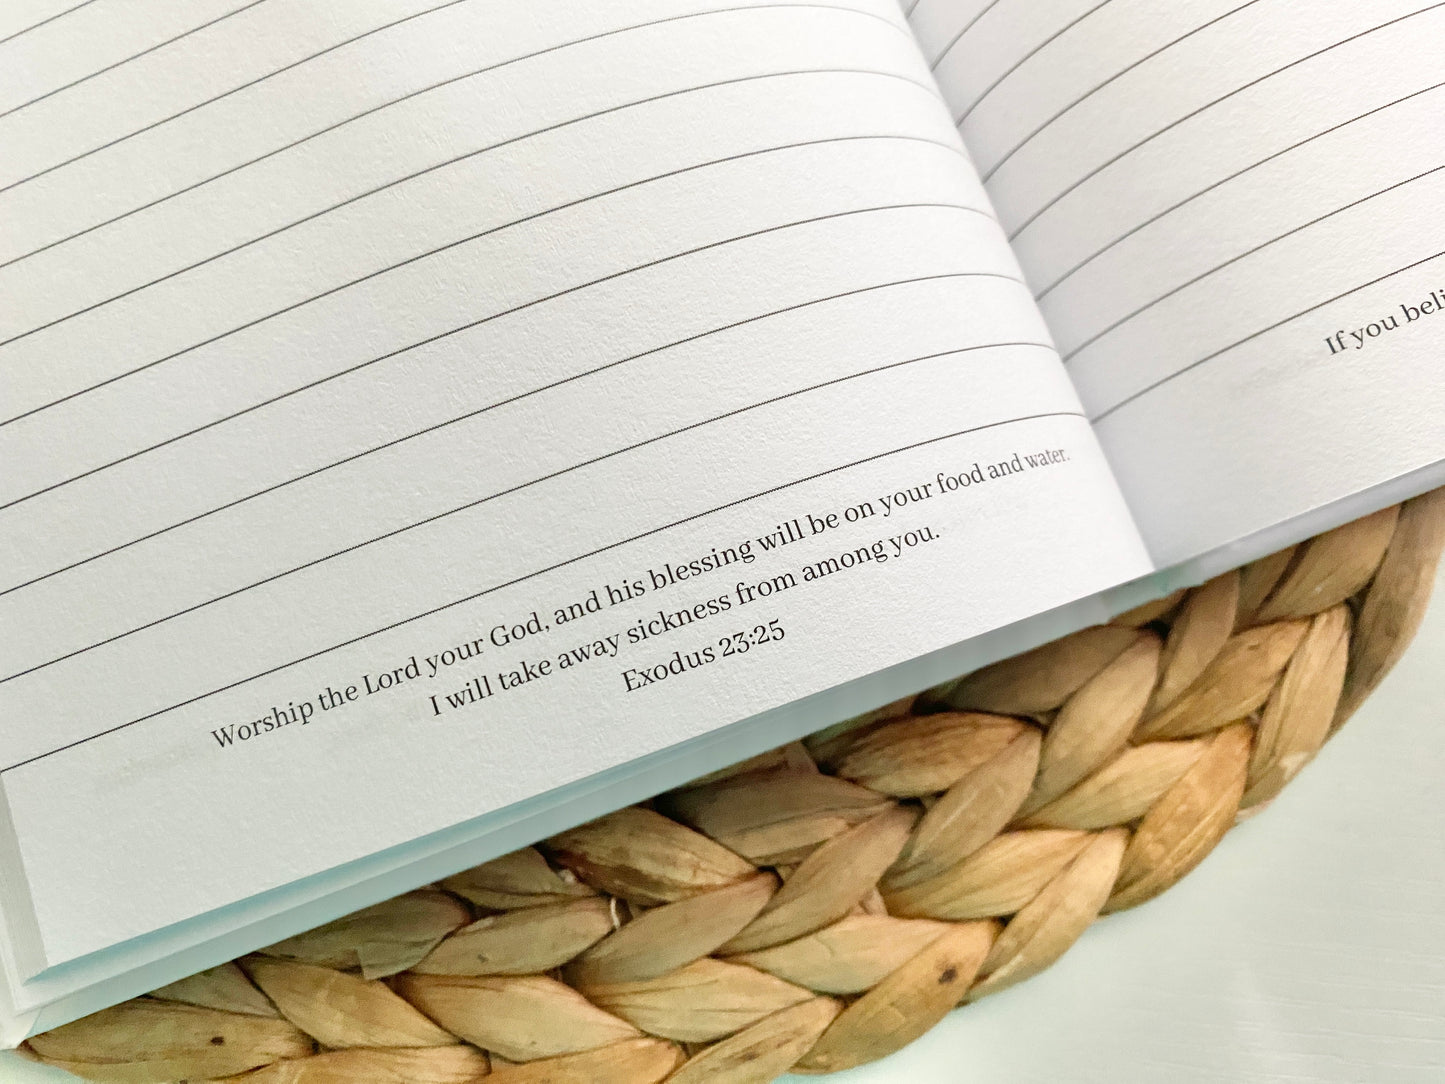 Worship the Lord your God, and his blessing will be on your food and water.
I will take away sickness from among you.
Exodus 23:25
If you